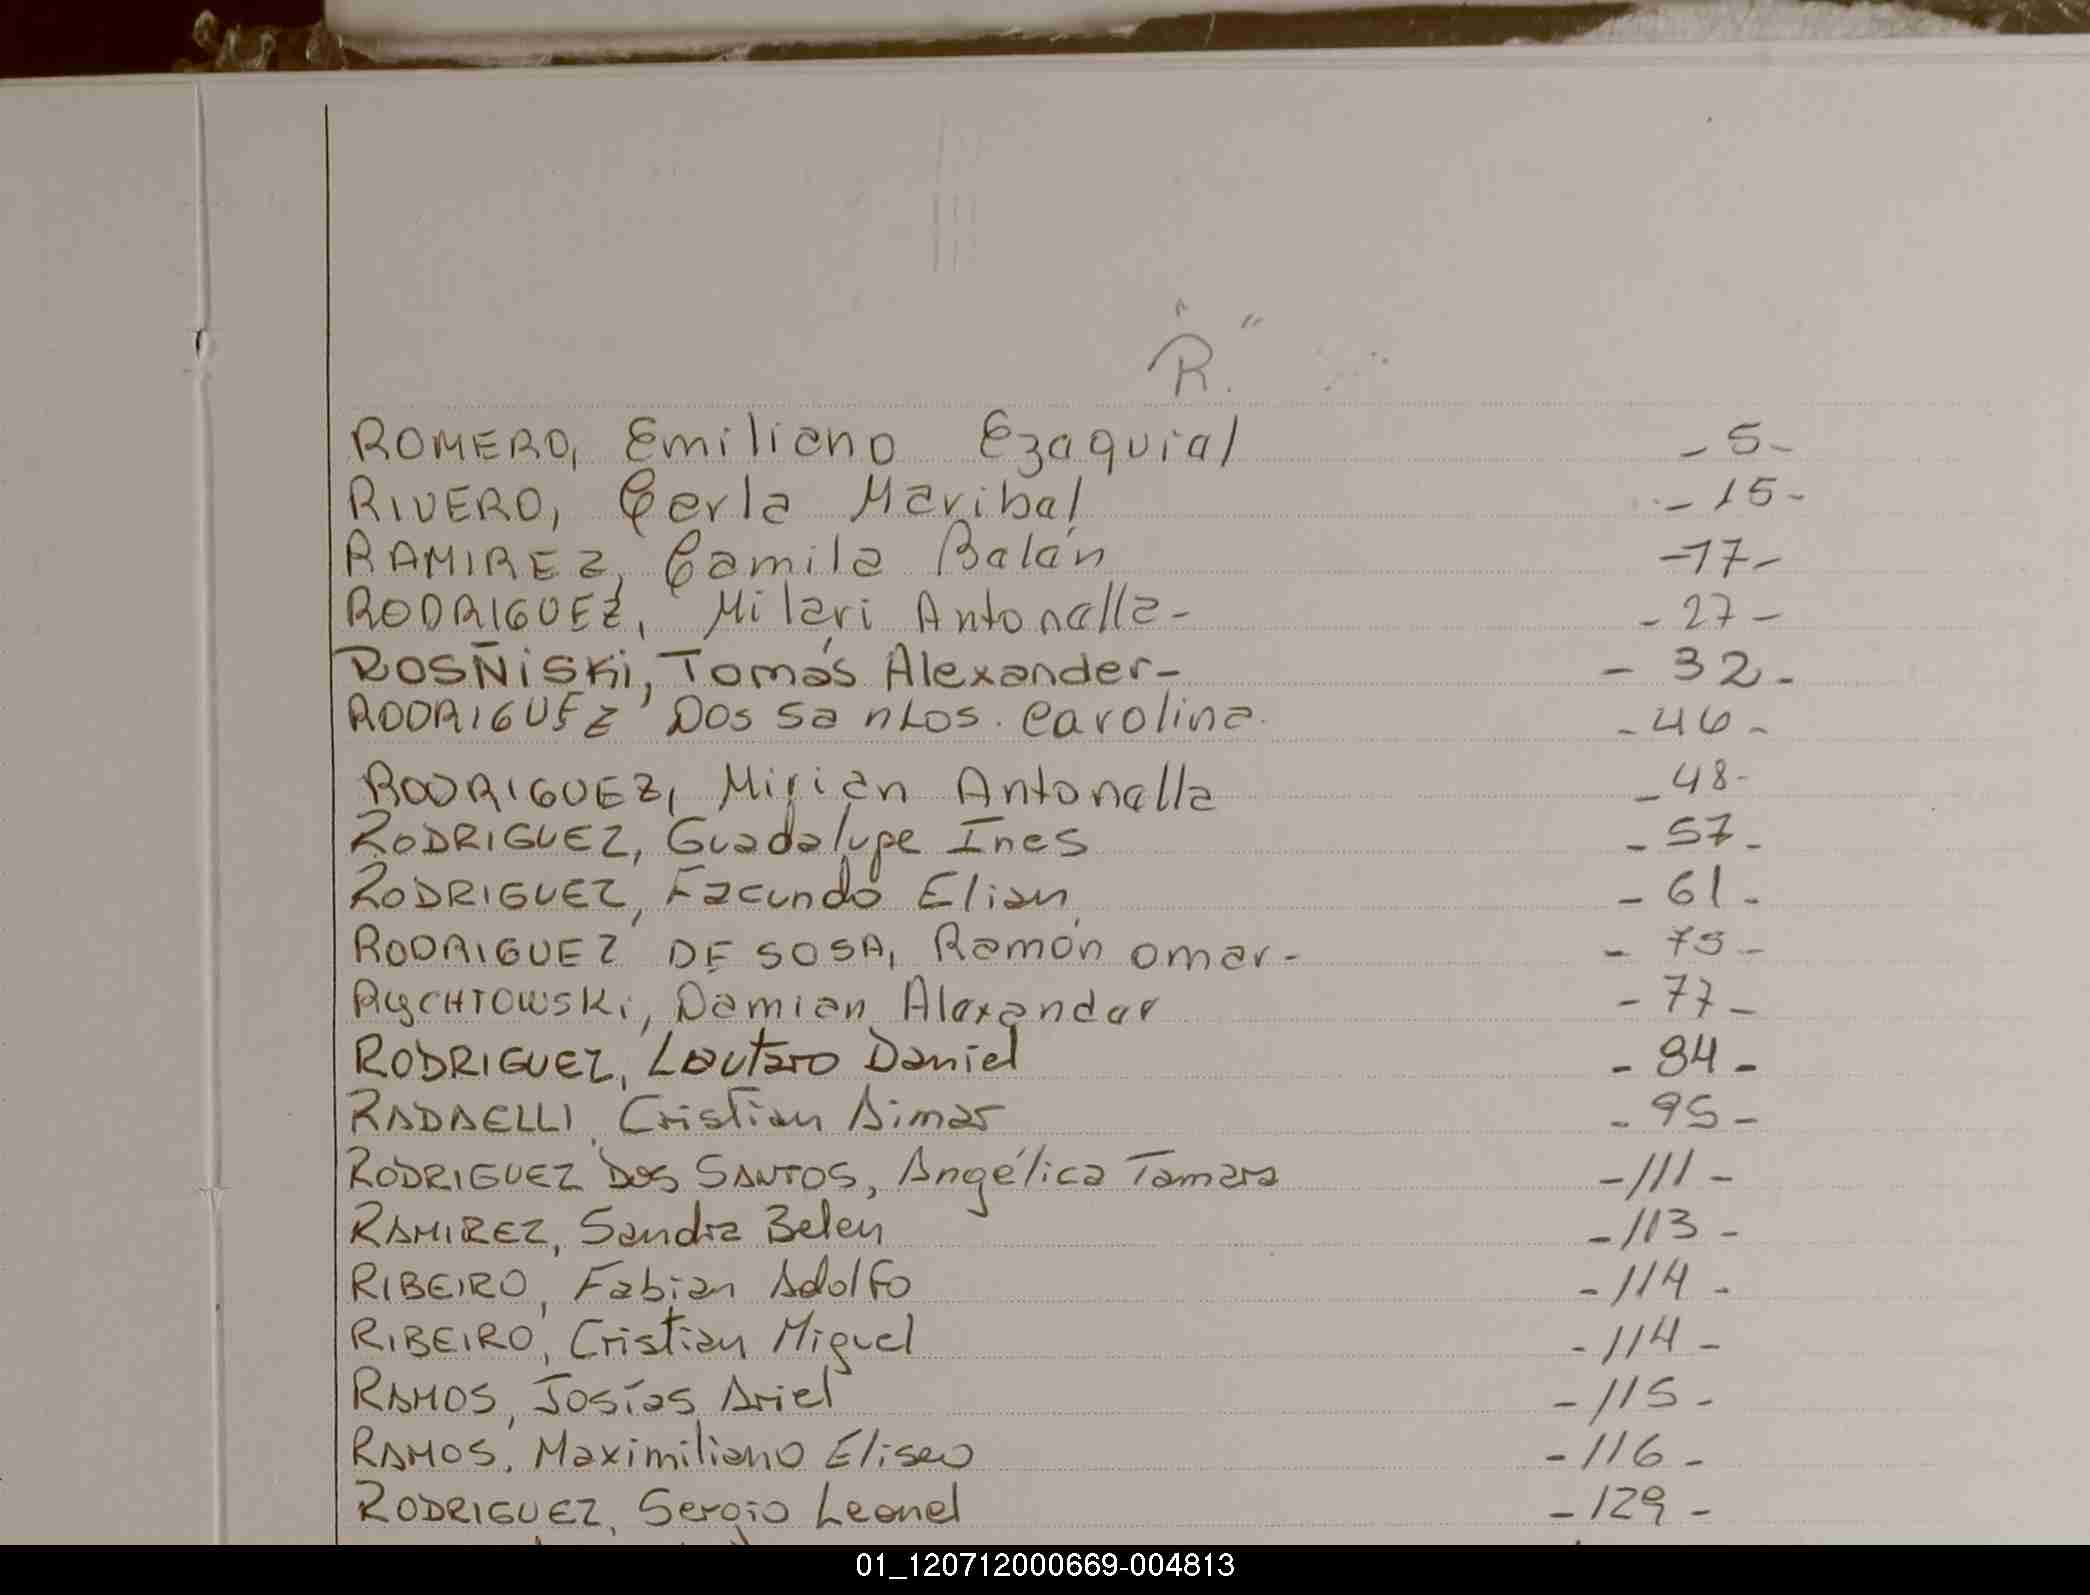 "R."
ROMERO, Emiliano Ezequiel -5-
RIVERO, Carla Maribel -15-
RAMIREZ, Camila Belén -17-
RODRIGUEZ, Milari Antonella- -27-
ROSÑiSKi, Tomás Alexander- -32-
RODRIGUEZ Dos Santos. Carolina. -46-
RODRIGUEZ, Mirian Antonella -48-
RODRIGUEZ, Guadalupe Ines -57-
RODRIGUEZ, Facundo Elian -61-
RODRIGUEZ DE SOSA, Ramón omar- -75-
RyCHTOWSKi, Damian Alexander -77-
RODRIGUEZ, Lautaro Daniel -84-
RADAELLI, Cristian Aimar -95-
RODRIGUEZ DOS SANTOS, Angélica Tamara -111-
RAMIREZ, Sandra Belen -113-
RIBEIRO, Fabian Adolfo -114-
RIBEIRO, Cristian Miguel -114-
RAMOS, Josías Ariel -115-
RAMOS, Maximiliano Eliseo -116-
RODRIGUEZ, Sergio Leonel -129-
01_120712000669-004813